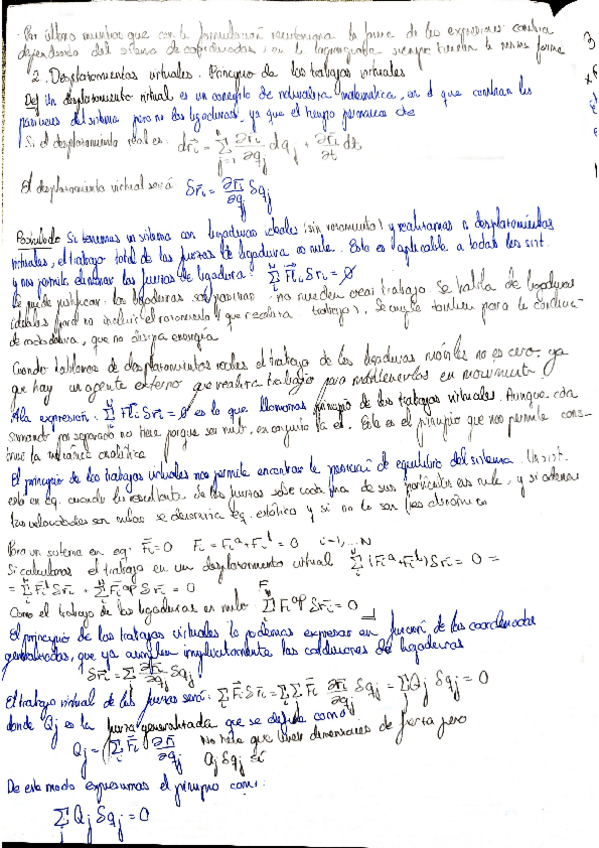 · Por último mientras que con la formulación newtoniana la forma de las expresiones cambia
dependiendo del sistema de coordenadas, en la lagrangiana siempre tienen la misma forma
2. Desplazamientos virtuales. Principio de los trabajos virtuales
Def Un desplazamiento virtual es un concepto de naturaleza matemática, en el que cambian las
posiciones del sistema pero no las ligaduras, ya que el tiempo permanece cte
Si el desplazamiento real es: dr⃗i = Σ ∂r⃗i/∂qj dqj + ∂r⃗i/∂t dt
El desplazamiento virtual será δr⃗i = ∂r⃗i/∂qj δqj
Postulado Si tenemos un sistema con ligaduras ideales (sin rozamiento) y realizamos desplazamientos
virtuales, el trabajo total de las fuerzas de ligadura es nulo. Esto es aplicable a todos los sist.
y nos permite eliminar las fuerzas de ligadura: Σ F⃗i δri = 0
Se puede justificar: las ligaduras son pasivas: no pueden crear trabajo. Se habla de ligaduras
ideales para no incluir el rozamiento (que realiza trabajo). Se cumple también para la
de rodadura, que no disipa energía
Cuando hablamos de desplazamientos reales el trabajo de las ligaduras móviles no es cero: ya
que hay un agente externo que realiza trabajo para mantenerlas en movimiento
A la expresión: Σ F⃗i δr⃗i = 0 es lo que llamamos principio de los trabajos virtuales. Aunque cada
sumando por separado no tiene porque ser nulo, en conjunto lo es. Este es el principio que nos permite cons-
truir la mecánica analítica
El principio de los trabajos virtuales nos permite encontrar la posición de equilibrio del sistema. Un sist.
está en eq. cuando la resultante de las fuerzas sobre cada una de sus partículas es nula, y si además
las velocidades son nulas se denomina eq. estático y si no lo son
Para un sistema en eq. F⃗i=0 F⃗i = F⃗iᵃ + F⃗iˡ = 0 i=1,... N
Si calculamos el trabajo en un desplazamiento virtual Σ (F⃗iᵃ + F⃗iˡ) δr⃗i = 0 =
= Σ F⃗iˡ δr⃗i + Σ F⃗iᵃᵖ δr⃗i = 0
Como el trabajo de las ligaduras es nulo Σ F⃗iᵃᵖ δr⃗i = 0
El principio de los trabajos virtuales lo podemos expresar en función de las coordenadas
generalizadas, que ya cumplen implícitamente las condiciones de ligaduras
δr⃗i = Σ ∂r⃗i/∂qj δqj
El trabajo virtual de las fuerzas será: Σ F⃗i δr⃗i = Σ Σ F⃗i ∂r⃗i/∂qj δqj = Σ Qj δqj = 0
donde Qj es la fuerza generalizada que se define como
Qj = Σ F⃗i ∂r⃗i/∂qj No tiene que tener dimensiones de fuerza pero
Qj δqj sí
De este modo expresamos el principio como:
Σ Qj δqj = 0